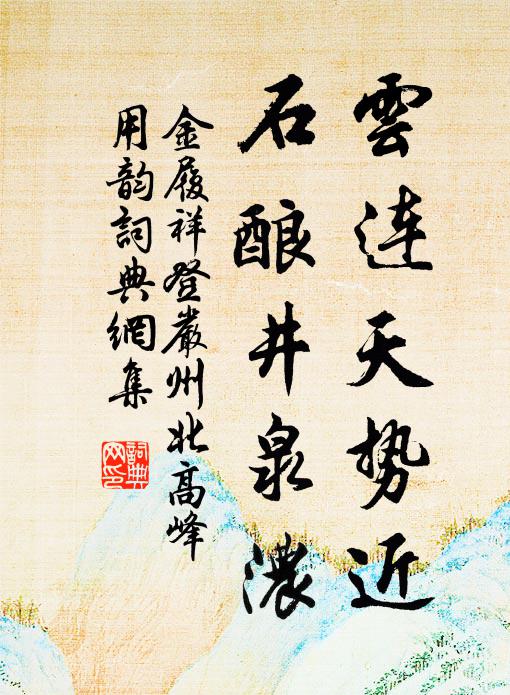 雲連天势近
石酿井泉濃
金履祥登嚴州北高峰
用韵詞典網集
詞典網印